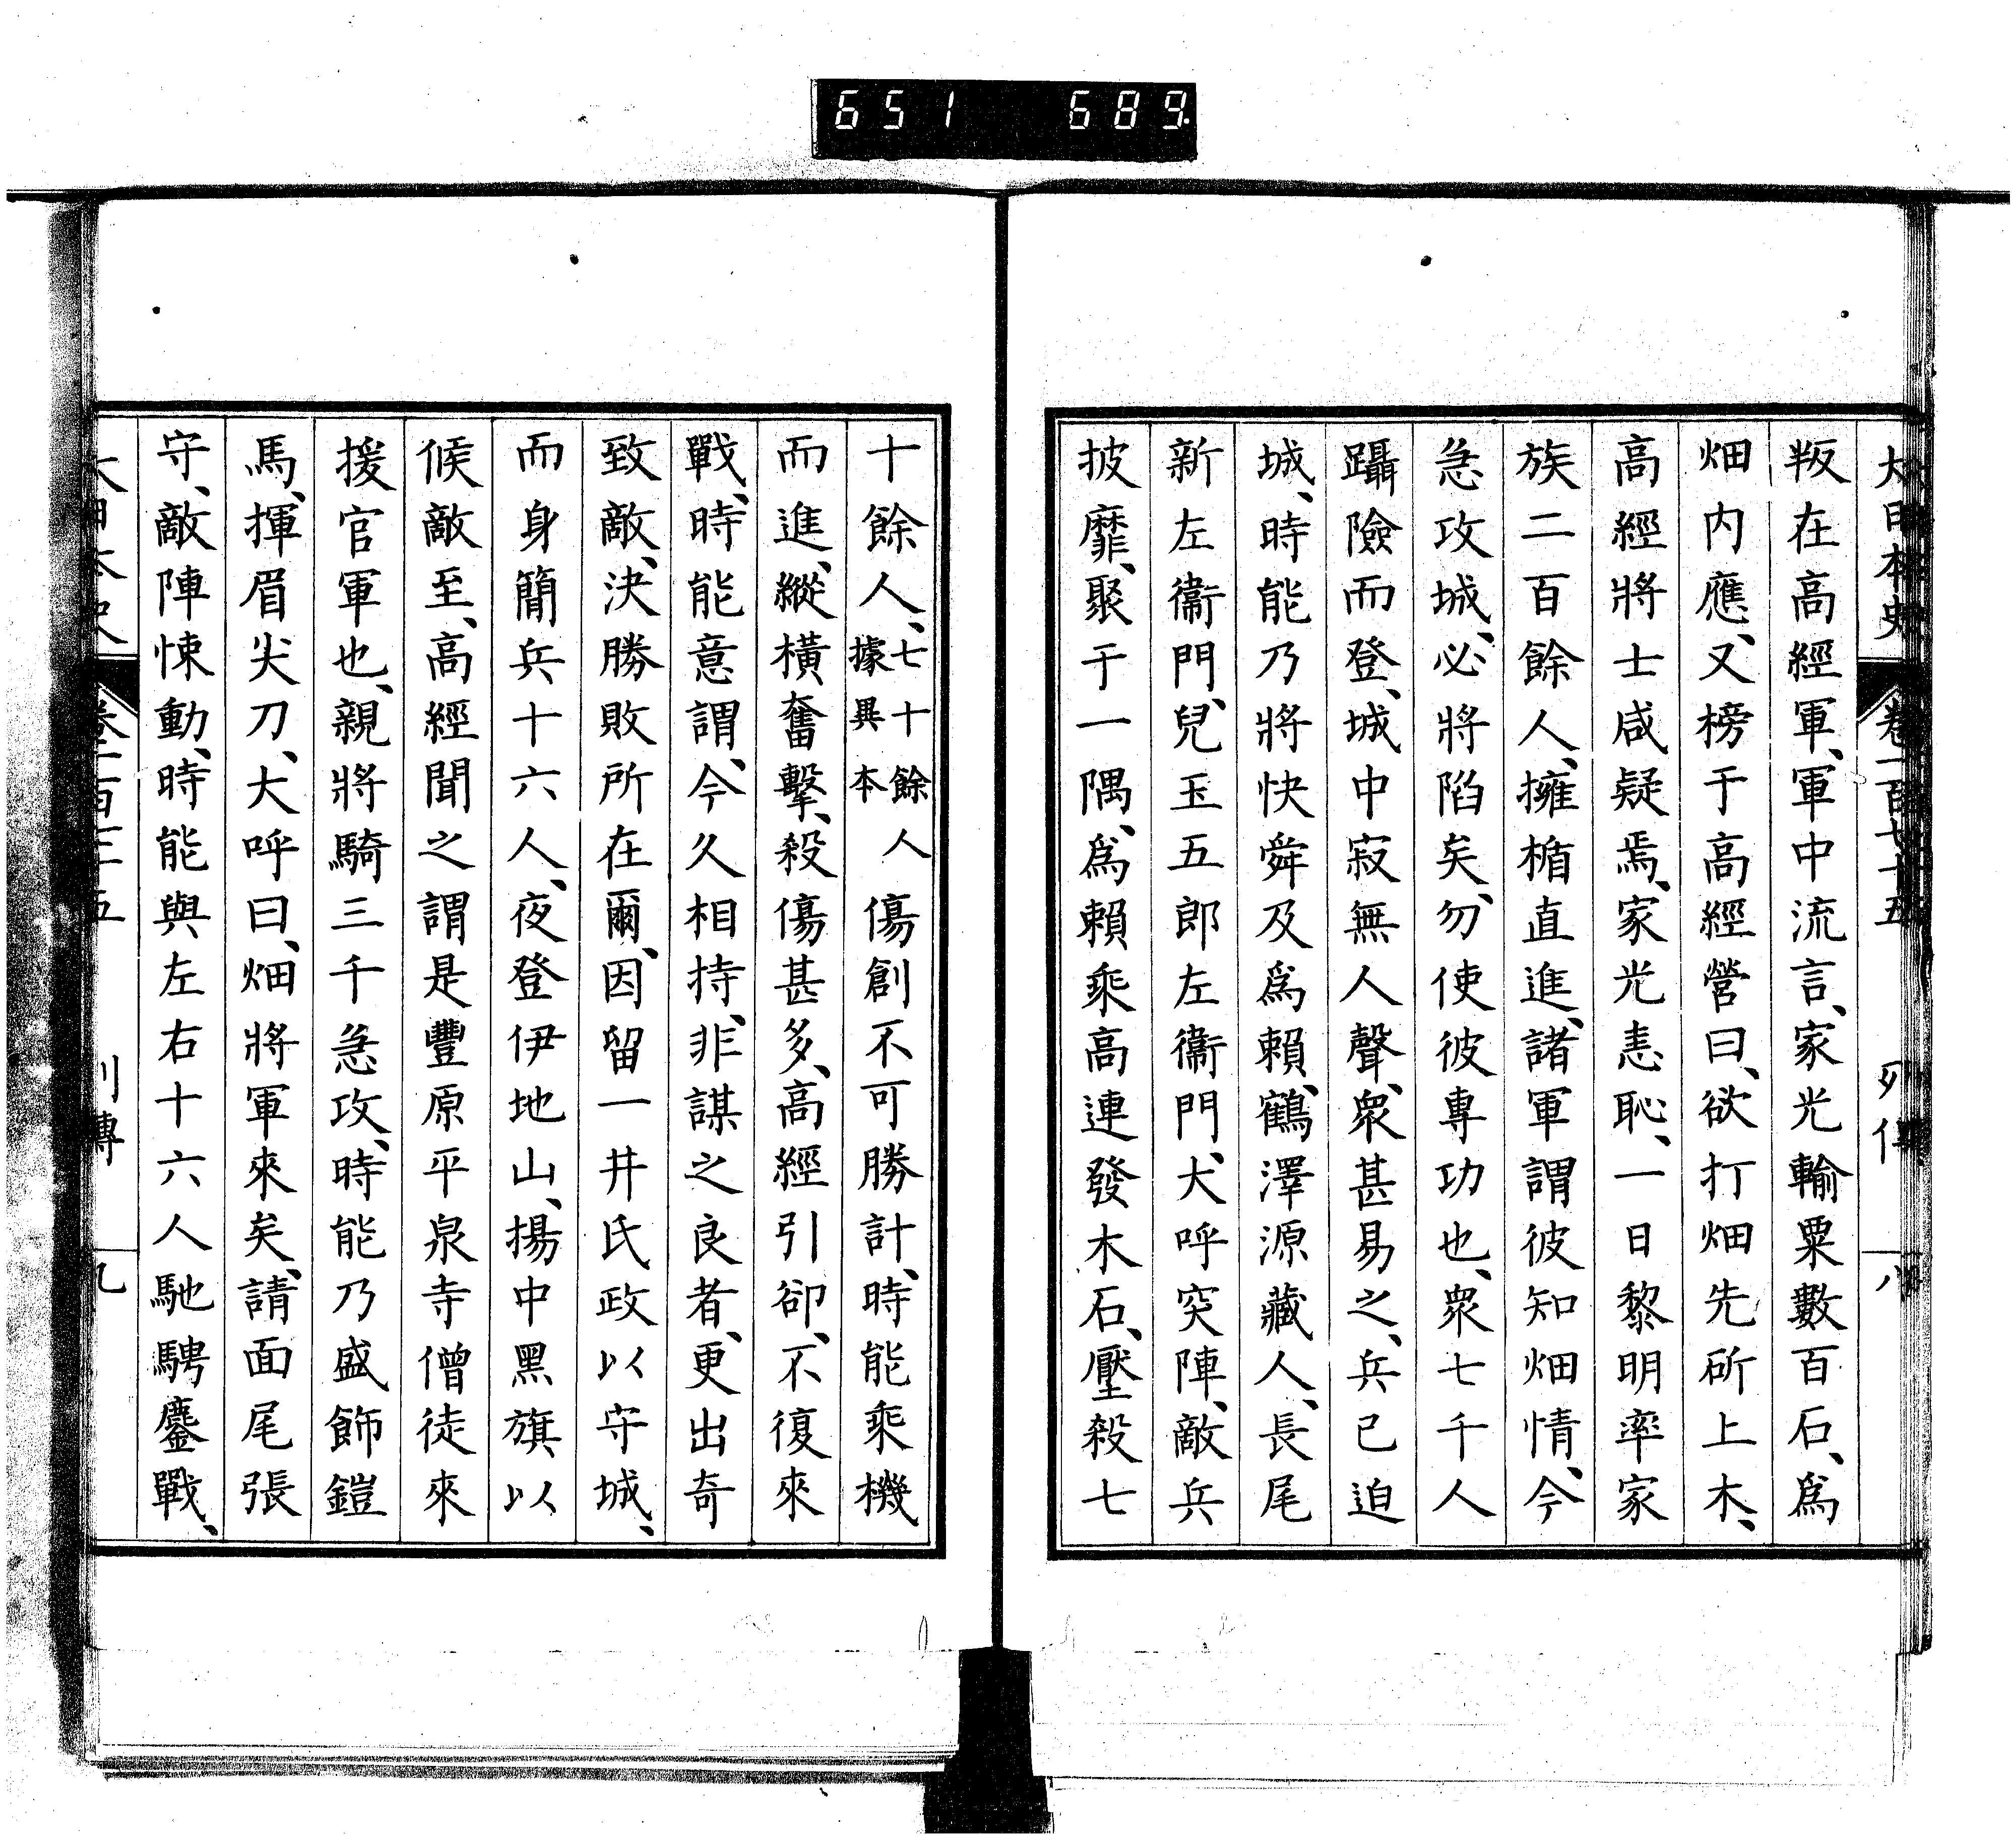 651 689
大日本史 卷一百七十五 列傳 八
叛在高經軍、軍中流言、家光輸粟數百石、爲
畑内應、又榜于高經營曰、欲打畑先斫上木、
高經將士咸疑焉、家光恚恥、一日黎明率家
族二百餘人、擁楯直進、諸軍謂彼知畑情、今
急攻城、必將陷矣、勿使彼專功也、衆七千人
躡險而登、城中寂無人聲、衆甚易之、兵已迫
城、時能乃將快舜及爲賴、鶴澤源藏人、長尾
新左衞門、兒玉五郎左衞門、大呼突陣、敵兵
披靡、聚于一隅、爲賴乘高連發木石、壓殺七
十餘人、七十餘人據異本傷創不可勝計、時能乘機
而進、縱橫奮擊、殺傷甚多、高經引卻、不復來
戰、時能意謂、今久相持、非謀之良者、更出奇
致敵、決勝敗所在爾、因留一井氏政以守城、
而身簡兵十六人、夜登伊地山、揚中黑旗以
候敵至、高經聞之謂是豐原平泉寺僧徒來
援官軍也、親將騎三千急攻、時能乃盛飾鎧
馬、揮眉尖刀、大呼曰、畑將軍來矣、請面尾張
守、敵陣悚動、時能與左右十六人馳騁鏖戰、
大日本史 列傳 九